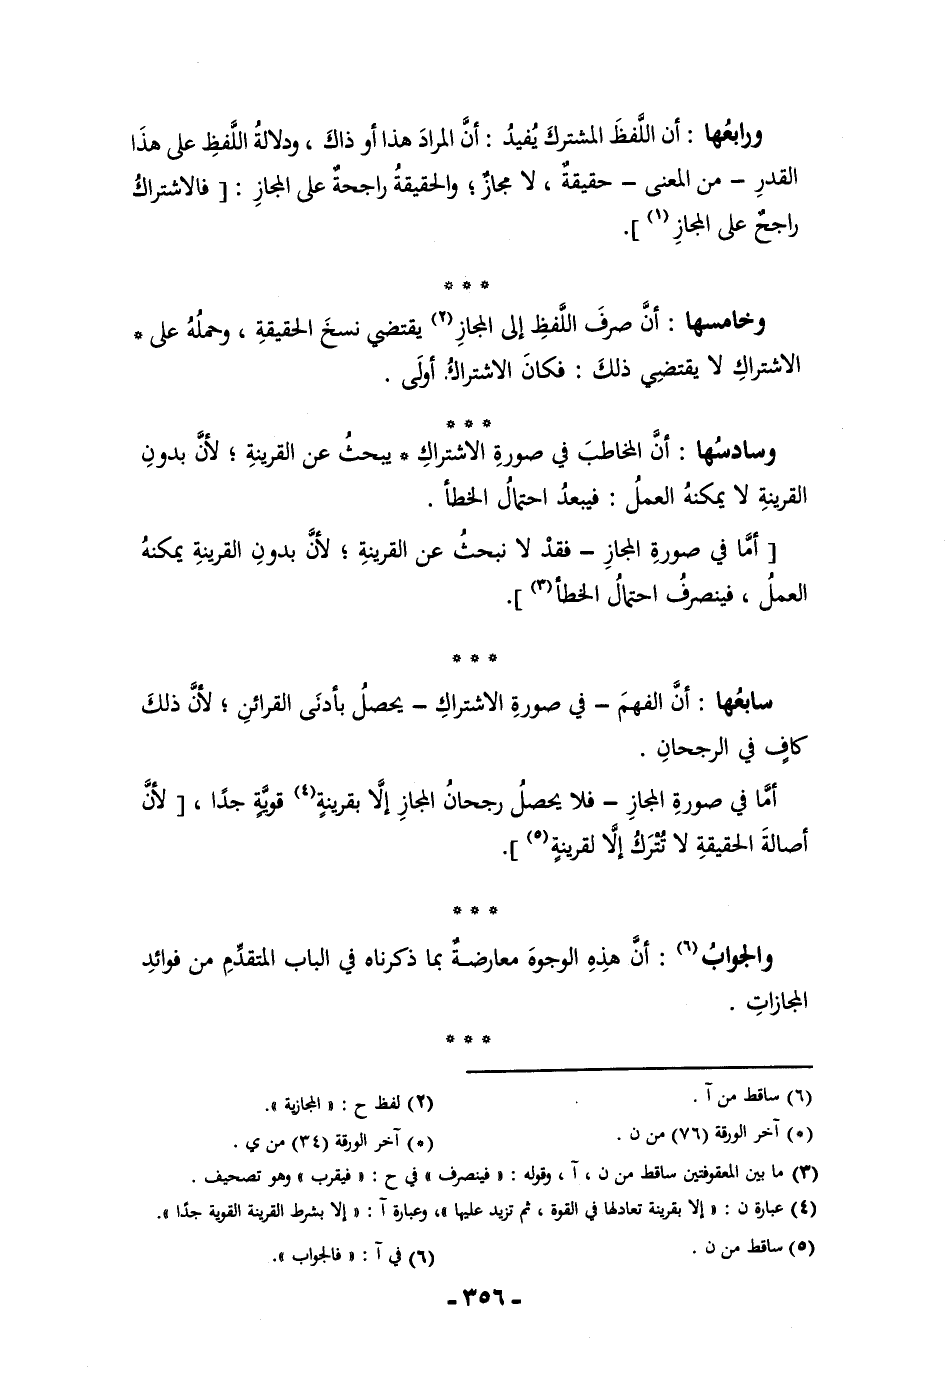 ورابعُها : أن اللَّفظَ المشتركَ يُفيدُ : أنَّ المرادَ هذا أو ذاكَ ، ودلالةُ اللَّفظِ على هذَا
القدرِ – من المعنى – حقيقةٌ ، لا مجازٌ ؛ والحقيقةُ راجحةٌ على المجازِ : [ فالاشتراكُ
راجحٌ على المجازِ(١) ].
* * *
وخامسها : أنَّ صرفَ اللَّفظِ إلى المجازِ(٢) يقتضي نسخَ الحقيقةِ ، وحملُهُ على *
الاشتراكِ لا يقتضِي ذلكَ : فكانَ الاشتراكُ أولَى .
* * *
وسادسُها : أنَّ المخاطبَ في صورةِ الاشتراكِ * يبحثُ عن القرينةِ ؛ لأنَّ بدونِ
القرينةِ لا يمكنهُ العملُ : فيبعدُ احتمالُ الخطأ .
[ أمَّا في صورةِ المجازِ – فقدْ لا نبحثُ عن القرينةِ ؛ لأنَّ بدونِ القرينةِ يمكنهُ
العملُ ، فينصرفُ احتمالُ الخطأ(٣) ].
* * *
سابعُها : أنَّ الفهمَ – في صورةِ الاشتراكِ – يحصلُ بأدنَى القرائنِ ؛ لأنَّ ذلكَ
كافٍ في الرجحانِ .
أمَّا في صورةِ المجازِ – فلا يحصلُ رجحانُ المجازِ إلَّا بقرينةٍ(٤) قويَّةٍ جدًا ، [ لأنَّ
أصالةَ الحقيقةِ لا تُتْرَكُ إلَّا لقرينةٍ(٥) ].
* * *
والجوابُ(٦) : أنَّ هذِهِ الوجوهَ معارضةٌ بما ذكرناه في الباب المتقدِّمِ من فوائدِ
المجازاتِ .
* * *
(٦) ساقط من آ . (٢) لفظ ح : « المجازية ».
(*) آخر الورقة (٧٦) من ن . (*) آخر الورقة (٣٤) من ي .
(٣) ما بين المعقوفتين ساقط من ن ، آ ، وقوله : « فينصرف » في ح : « فيقرب » وهو تصحيف .
(٤) عبارة ن : « إلا بقرينة تعادلها في القوة ، ثم تزيد عليها »، وعبارة آ : « إلا بشرط القرينة القوية جدًا ».
(٥) ساقط من ن . (٦) في آ : « فالجواب ».
- ٣٥٦ -